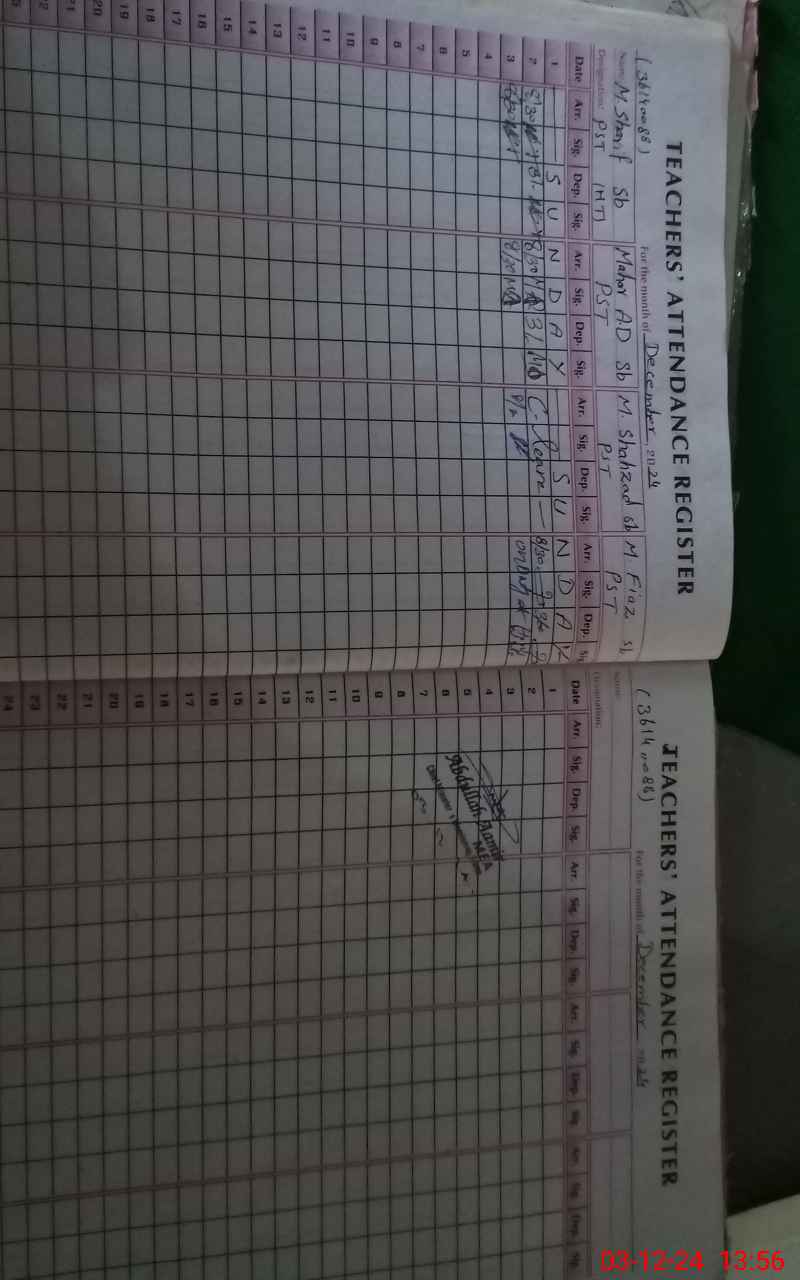 TEACHERS' ATTENDANCE REGISTER
(36140088) For the month of December 2024
Name: M. Sharif Sb Mahar A.D Sb M. Shahzad Sb M Fiaz Sb
Designation: PST (HT) PST PST PST
Date Arr. Sig. Dep. Sig. Arr. Sig. Dep. Sig. Arr. Sig. Dep. Sig. Arr. Sig. Dep. Sig.
1 S U N D A Y S U N D A Y
2 8/30 8/30 C-leave 8/30
3 8/30 8/30
4
5
6
7
8
9
10
11
12
13
14
15
16
17
18
19
20
21
22
TEACHERS' ATTENDANCE REGISTER
(36140088) For the month of December 2024
Name:
Designation:
Date Arr. Sig. Dep. Sig. Arr. Sig. Dep. Sig. Arr. Sig. Dep. Sig. Arr. Sig. Dep. Sig.
1
2
3
4
5
6
7
8
9
10
11
12
13
14
15
16
17
18
19
20
21
22
23
24
Abdullah Aamir
MEA
03-12-24 13:56